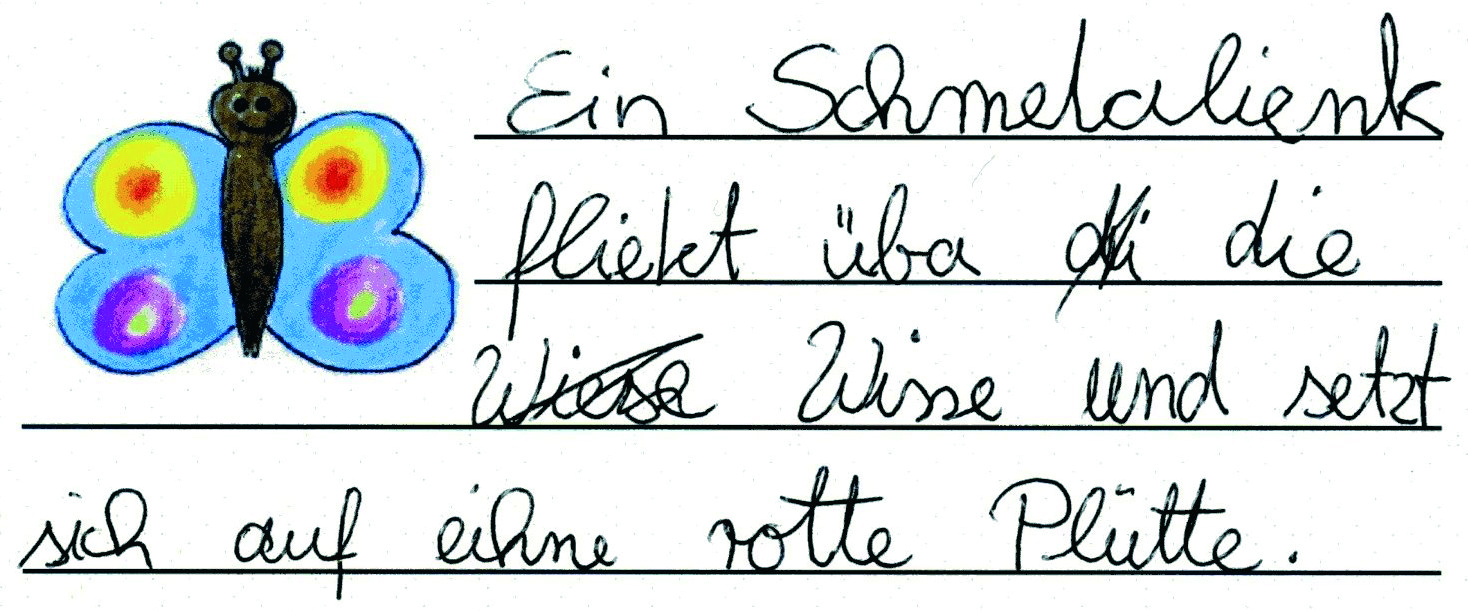 Ein Schmetalienk
fliekt üba di die
Wiese Wisse und setzt
sich auf eihne rotte Plütte.